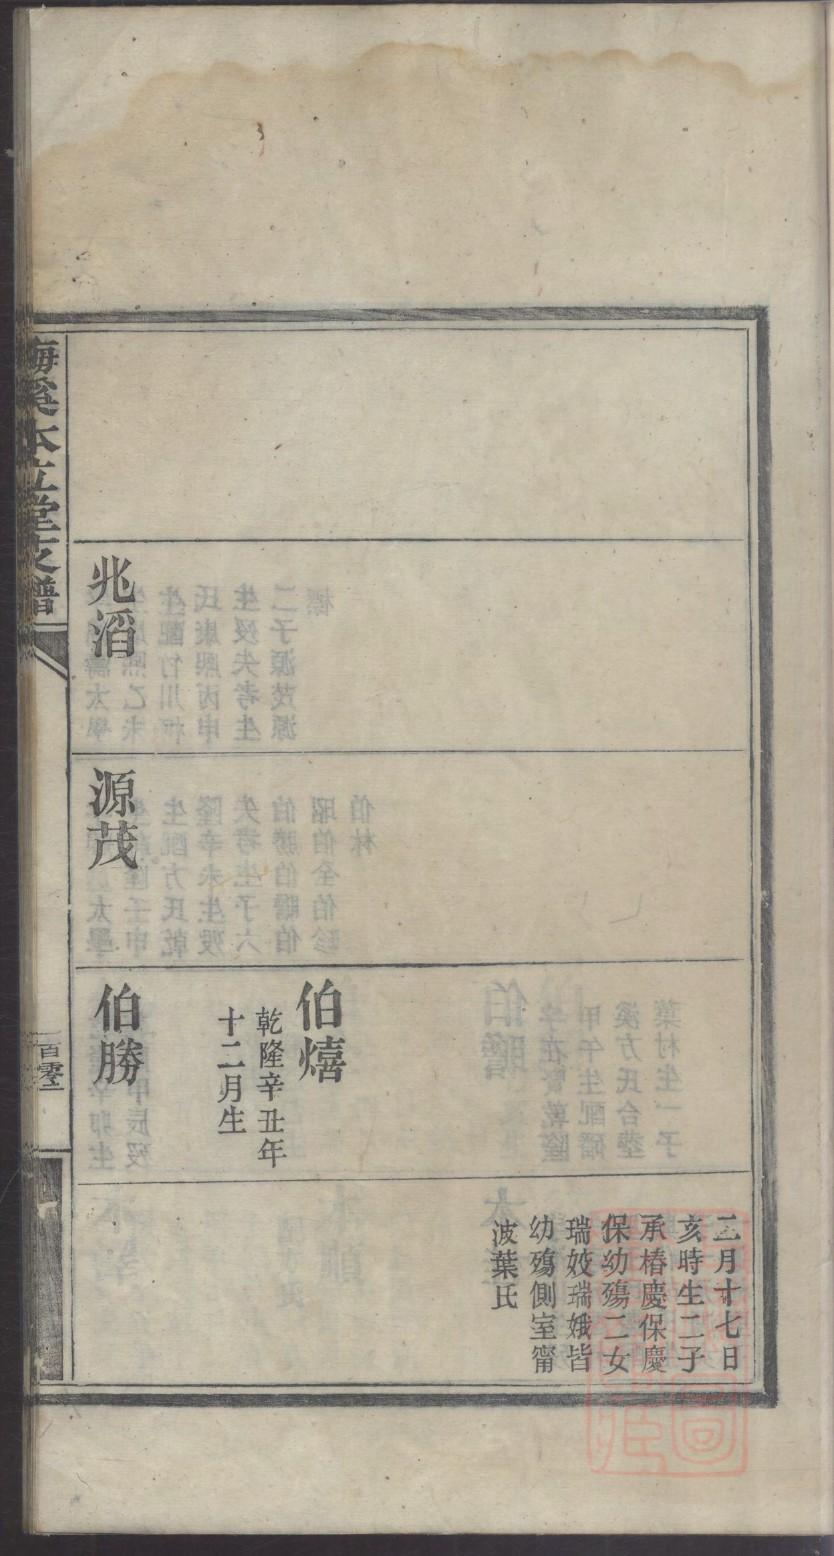 二月十七日
亥時生二子
承椿慶保慶
保幼殤二女
瑞妓瑞娥皆
幼殤側室甯
波葉氏
伯熺
乾隆辛丑年
十二月生
兆滔
源茂
伯勝
梅溪本立堂支譜
百零二